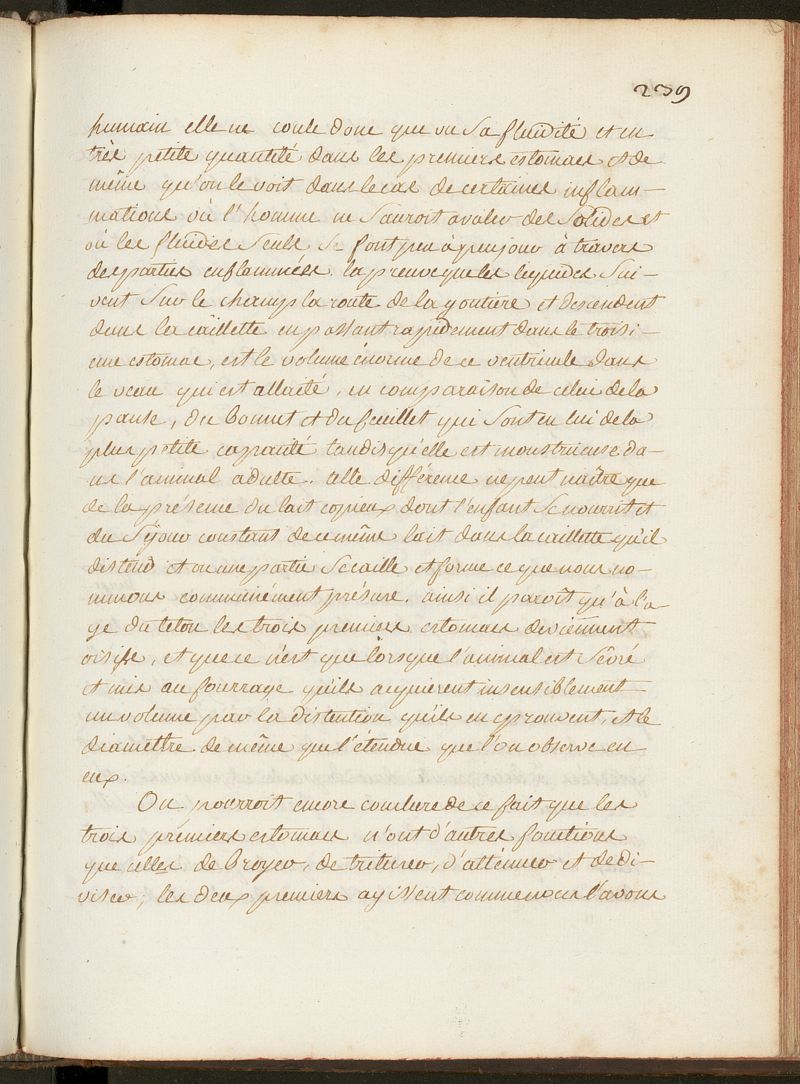 239
humain elle ne coule donc que vu sa fluidité et en
très petite quantité dans les premiers estomacs et de
même qu'on le voit dans le cas de certaines inflam-
mations où l'homme ne sauroit avaler des solides et
où les fluides seuls se font peu à peu jour à travers
des parties enflammées. la preuve que les liquides sui-
vent sur le champ la route de la goutiere et descendent
dans la caillette en passant rapidement dans le troisi-
eme estomac, est le volume énorme de ce ventricule dans
le veau qui est allaité, en comparaison de celui de la
panse, du bonnet et du feuillet qui sont en lui de la
plus petite capacité tandis qu'elle est monstrueuse da-
ns l'animal adulte. cette différence ne peut naître que
de la présence du lait copieux dont l'enfant se nourrit et
du séjour constant de ce même lait dans la caillette qu'il
distend et ou une partie se caille et forme ce que nous no-
mmons communément présure. ainsi il paroît qu'à l'a-
ge du teton les trois premiers estomacs deviennent
oisifs, et que ce n'est que lorsque l'animal est sévré
et mis au fourrage qu'ils acquierent insensiblement
un volume par la distention qu'ils en éprouvent, et le
diamettre de même que l'étendue que l'on observe en
eux.
On pourroit encore conclure de ce fait que les
trois premiers estomacs n'ont d'autres fonctions
que celles de broyer, de triturer, d'atténuer et de di-
viser; les deux premiers agissent comme nous l'avons